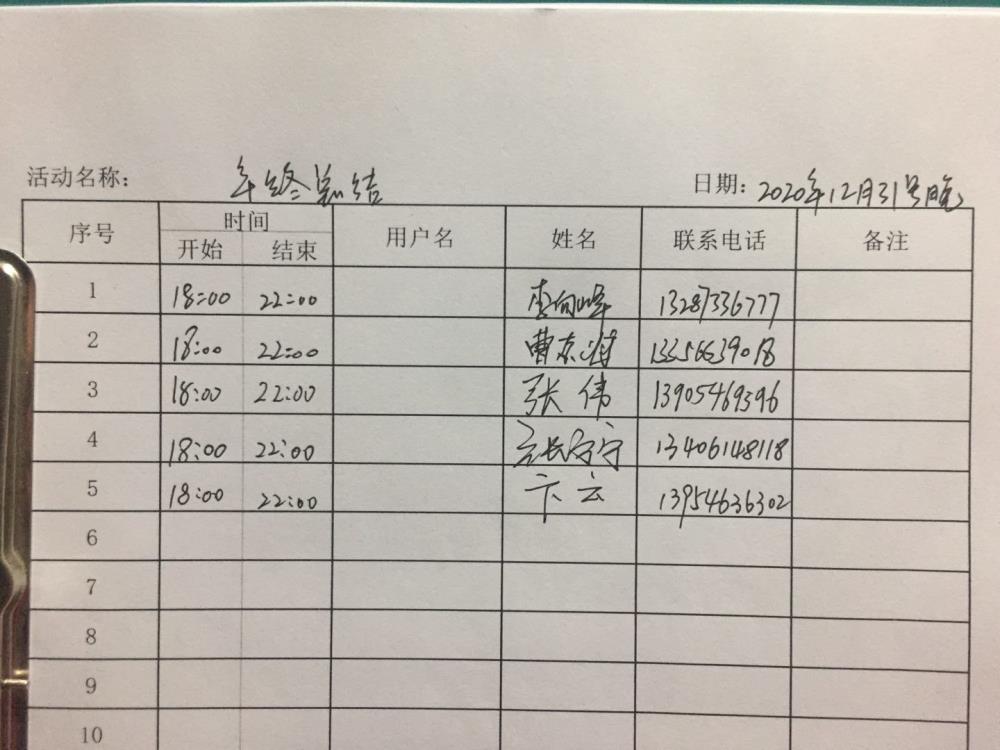 活动名称： 年终总结 日期：2020年12月31号晚
序号 时间 用户名 姓名 联系电话 备注
开始 结束
1 18:00 22:00 李向峰 13287336777
2 18:00 22:00 曹东 13356639018
3 18:00 22:00 张伟 13905469396
4 18:00 22:00 宁宁 13406148118
5 18:00 22:00 卞云 13954636302
6
7
8
9
10